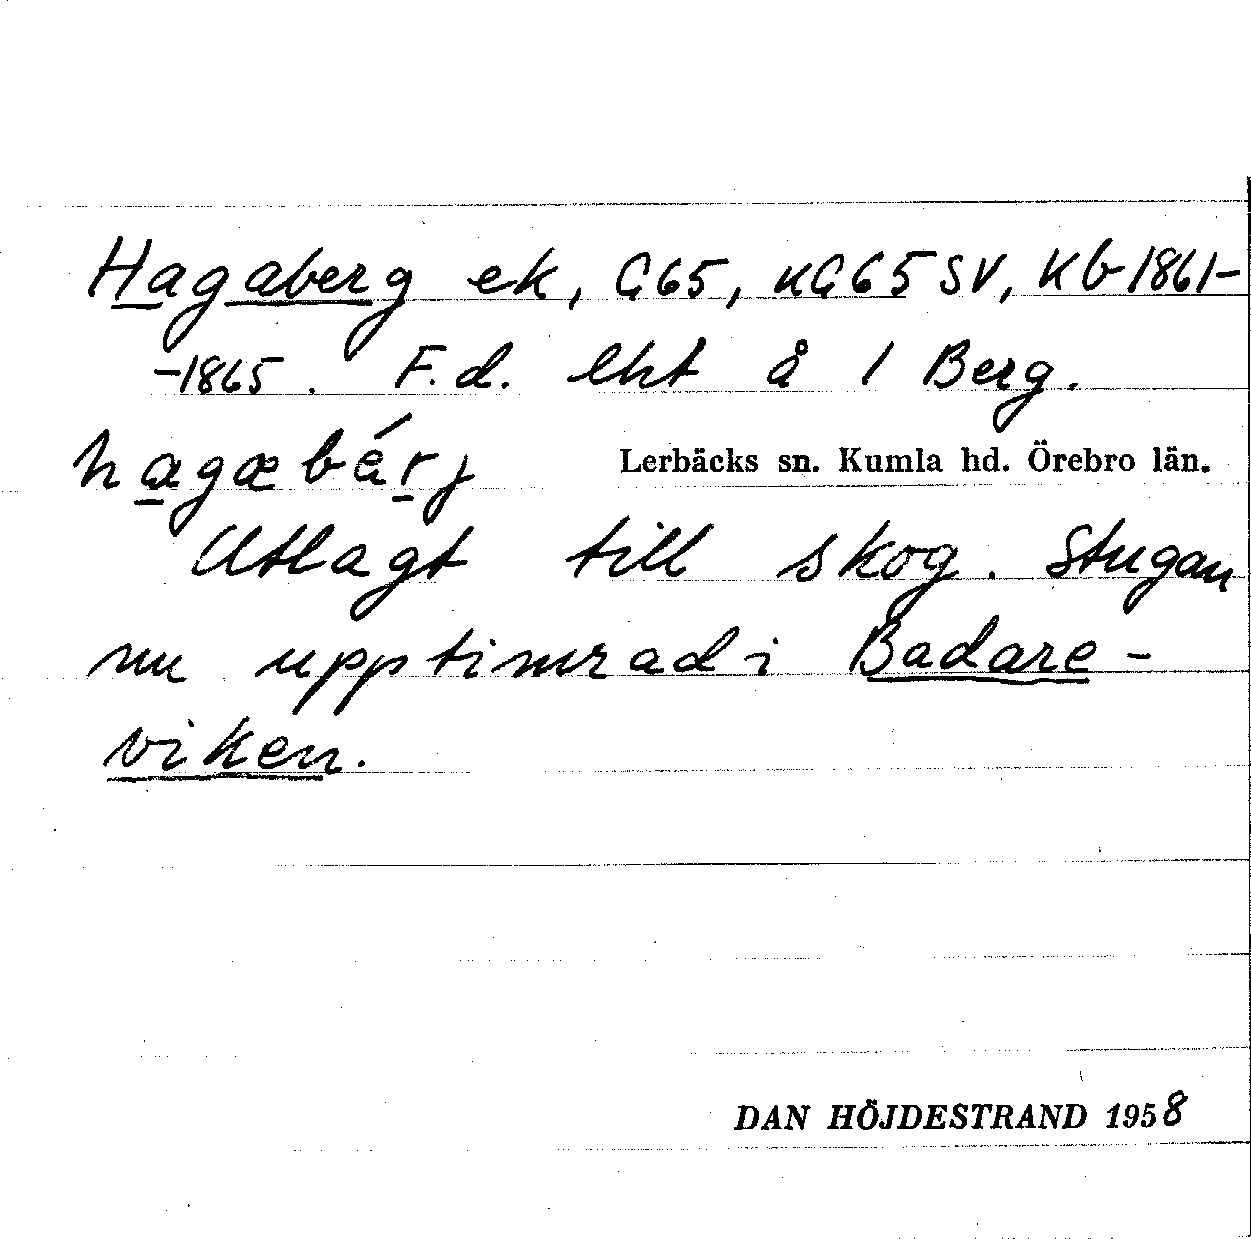 Hagaberg ek, G65, uG65SV, Kb 1861-
-1865. F.d. lht å 1 Berg.
hagæbérj Lerbäcks sn. Kumla hd. Örebro län.
Utlagt till skog. Stugan
nu upptimrad i Badare-
viken.
DAN HÖJDESTRAND 1958